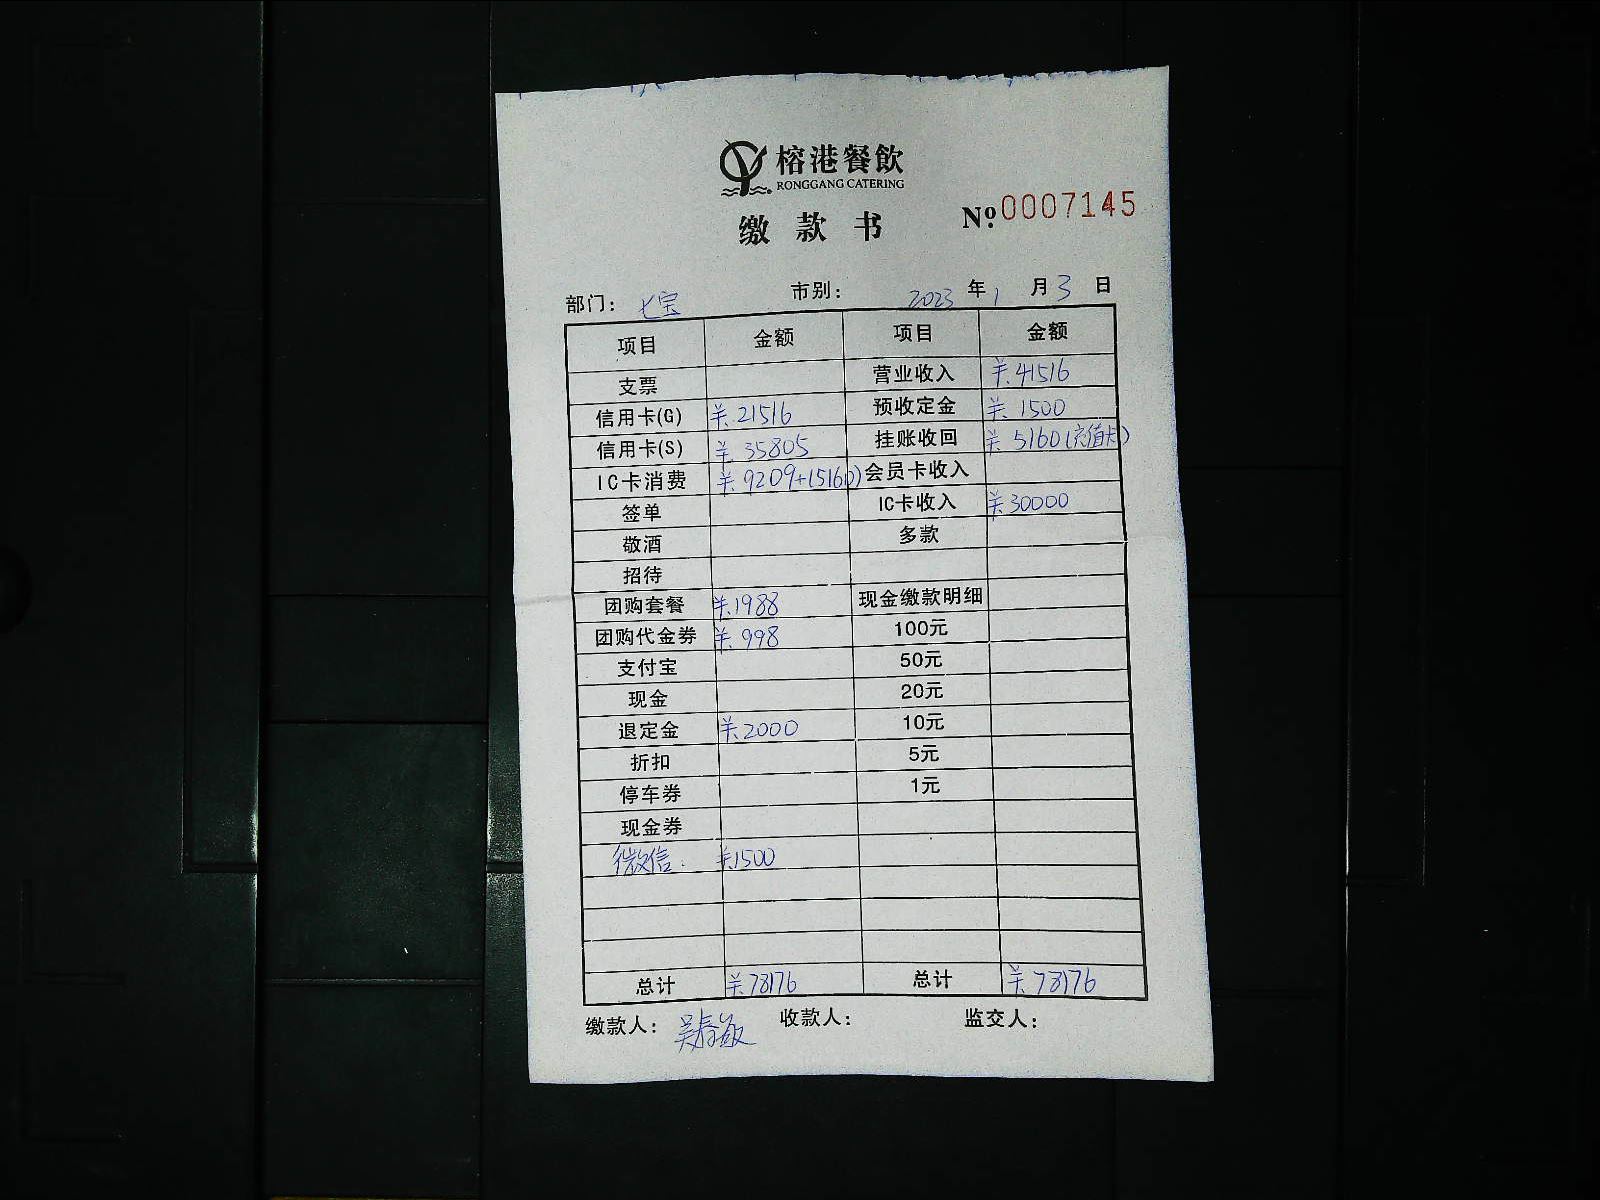 榕港餐飲
RONGGANG CATERING
缴款书 Nº:0007145
部门: 七宝 市别: 2023 年 1 月 3 日
项目 金额 项目 金额
支票 营业收入 ¥.41516
信用卡(G) ¥.21516 预收定金 ¥.1500
信用卡(S) ¥.35805 挂账收回 ¥.5160(充值卡)
IC卡消费 ¥.9209+(5160) 会员卡收入
签单 IC卡收入 ¥.30000
敬酒 多款
招待
团购套餐 ¥.1988 现金缴款明细
团购代金券 ¥.998 100元
支付宝 50元
现金 20元
退定金 ¥.2000 10元
折扣 5元
停车券 1元
现金券
微信. ¥.1500
总计 ¥.78176 总计 ¥.78176
缴款人: 吴 收款人: 监交人: